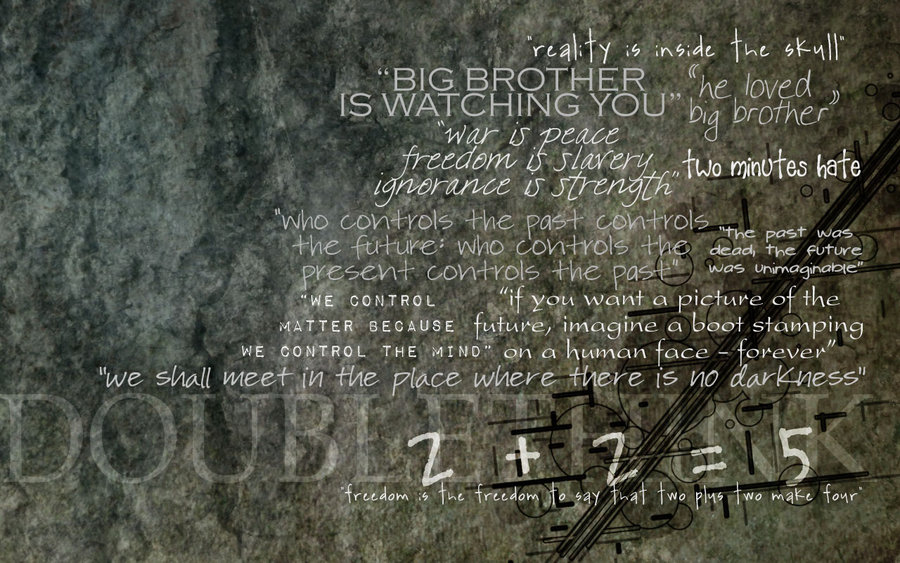 "reality is inside the skull"
"BIG BROTHER
IS WATCHING YOU"
"he loved
big brother"
"war is peace
freedom is slavery
ignorance is strength"
two minutes hate
"who controls the past controls
the future: who controls the
present controls the past"
"the past was
dead, the future
was unimaginable"
"WE CONTROL
MATTER BECAUSE
WE CONTROL THE MIND"
"if you want a picture of the
future, imagine a boot stamping
on a human face – forever"
"we shall meet in the place where there is no darkness"
DOUBLETHINK
2 + 2 = 5
"freedom is the freedom to say that two plus two make four"